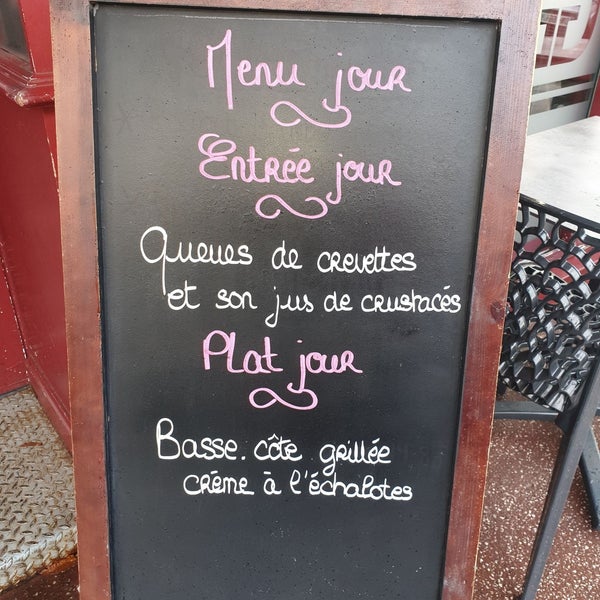 Menu jour
Entrée jour
Queues de crevettes
et son jus de crustacés
Plat jour
Basse.côte grillée
crème à l'échalotes